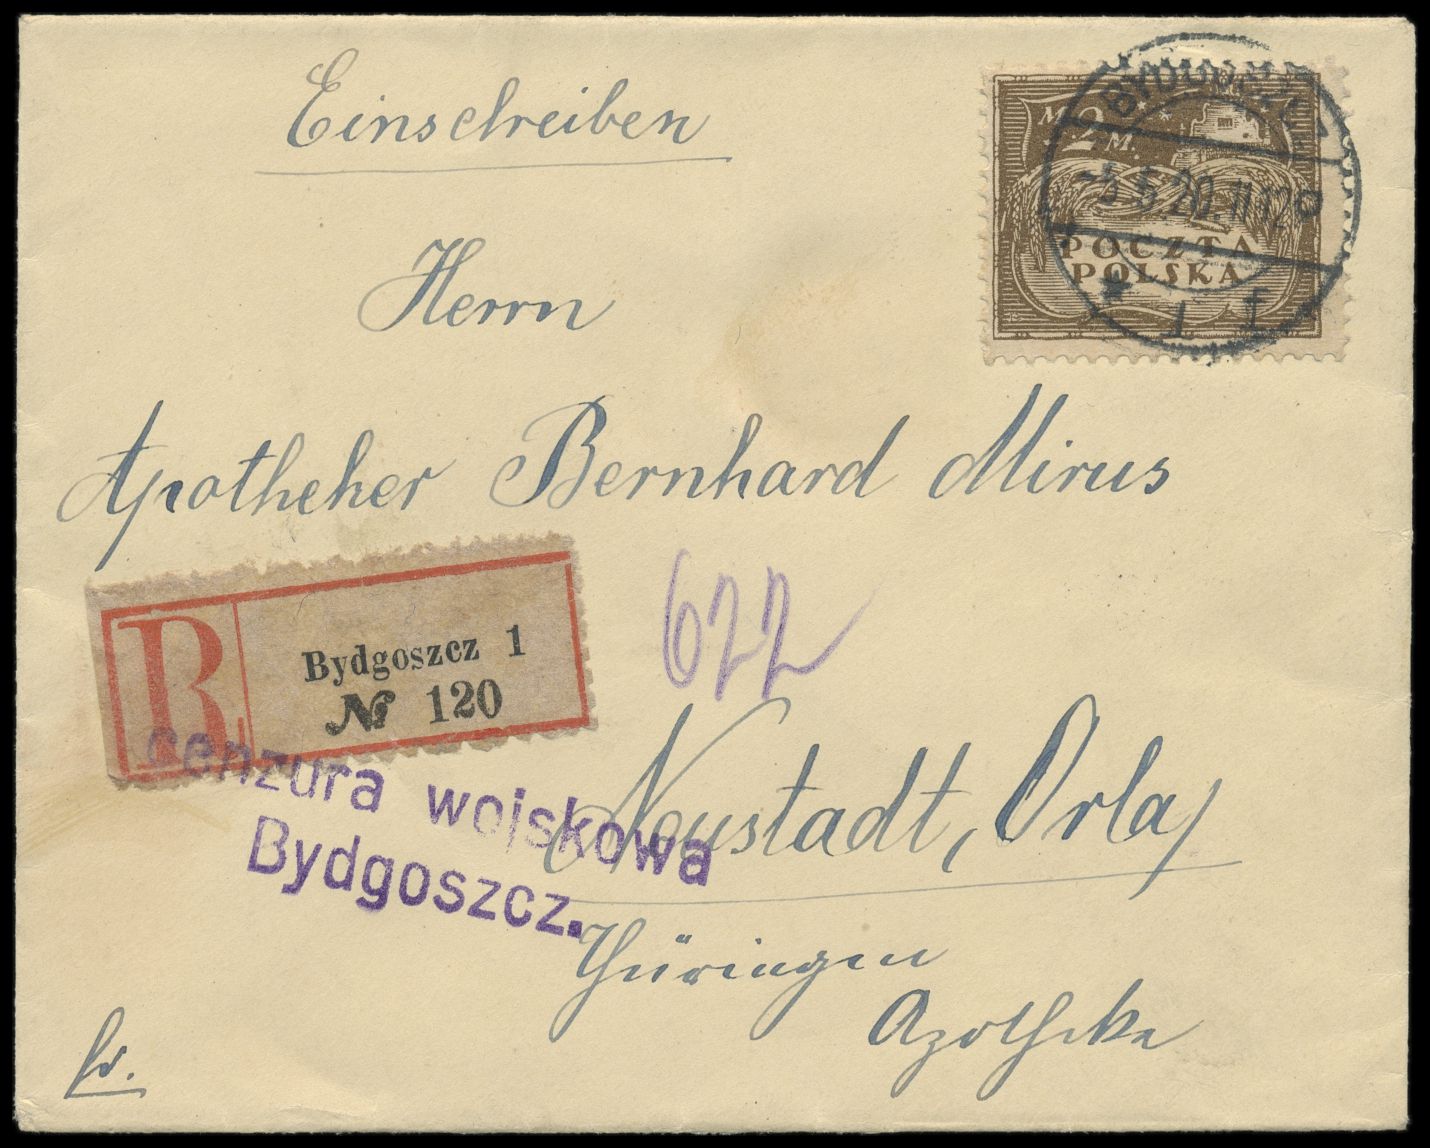 Einschreiben
Herrn
Apotheker Bernhard Mirus
Neustadt, Orla
Thüringen
Apotheke
fr.
622
R
Bydgoszcz 1
№ 120
cenzura wojskowa
Bydgoszcz.
M. 2 M.
POCZTA
POLSKA
BYDGOSZCZ
-5.5.20.11-12
* 1 f